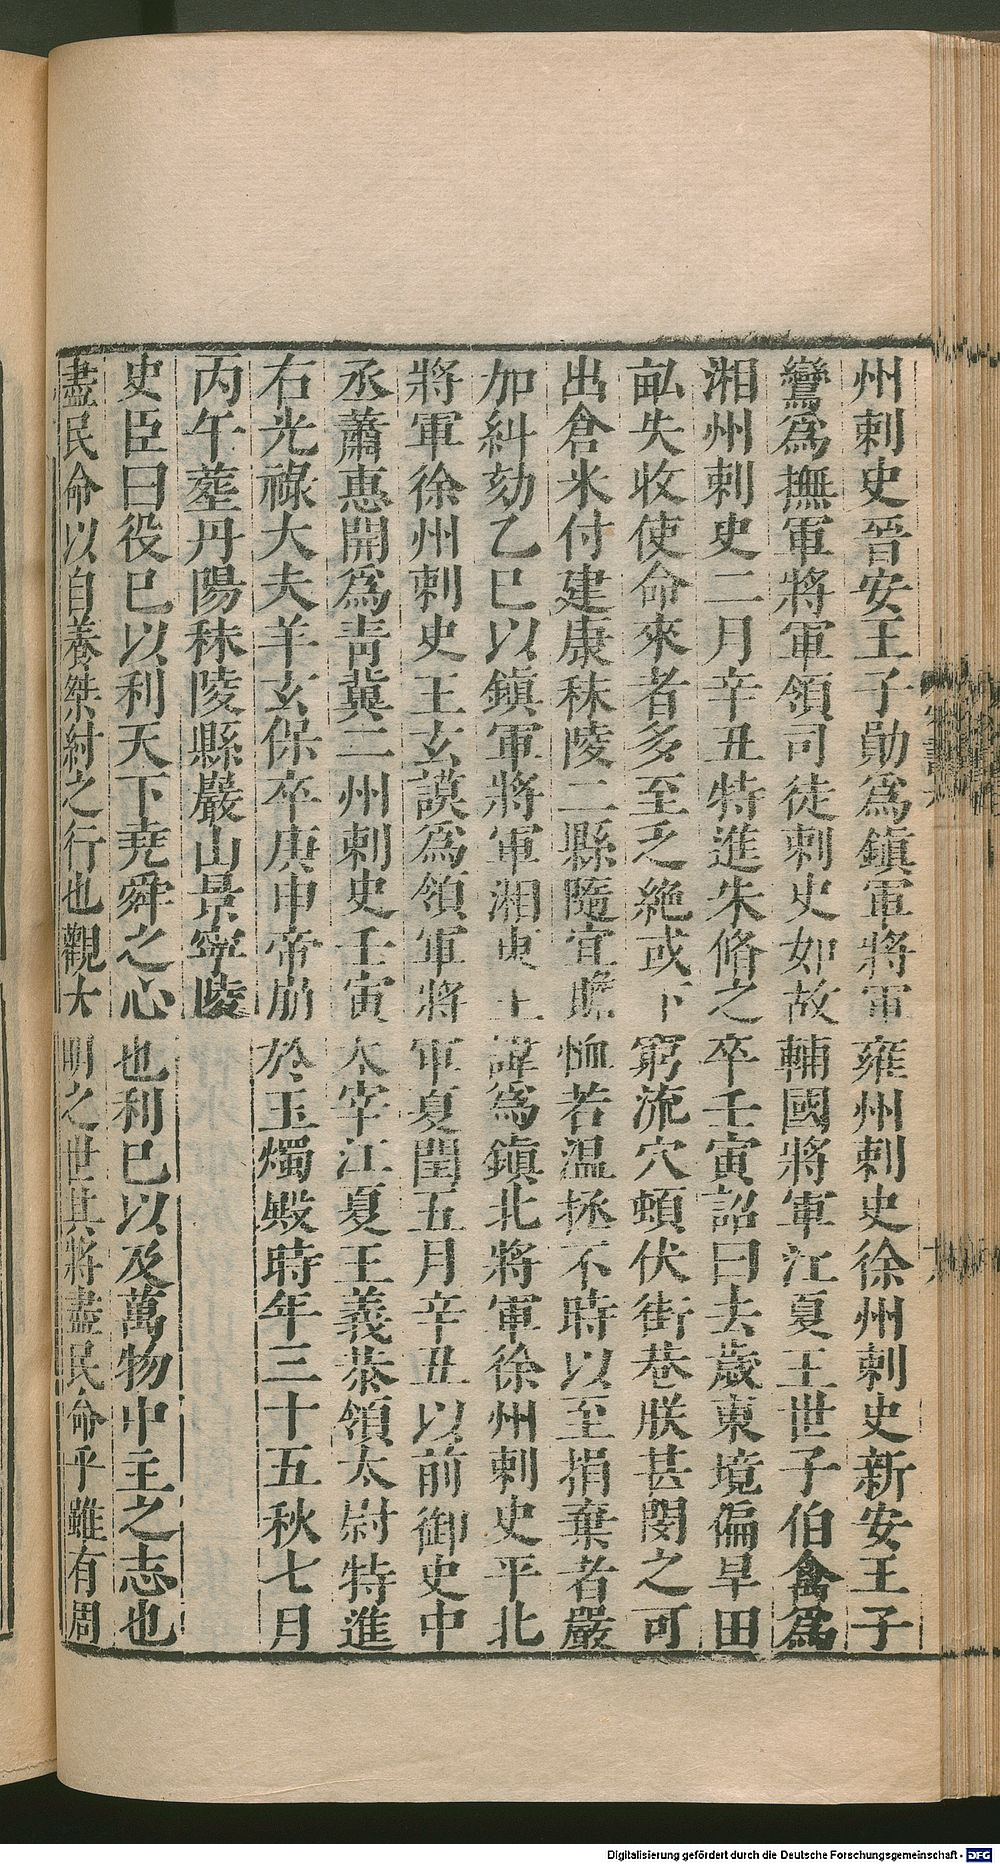 州刺史晉安王子勛爲鎮軍將軍雍州刺史徐州刺史新安王子
鸞爲撫軍將軍領司徒刺史如故輔國將軍江夏王世子伯禽爲
湘州刺史二月辛丑特進朱脩之卒壬寅詔曰去歲東境偏旱田
畝失收使命來者多至乏絶或下窮流穴頓伏街巷朕甚閔之可
出倉米付建康秣陵二縣隨宜贍恤若温拯不時以至捐棄者嚴
加糾劾乙巳以鎮軍將軍湘東王諱爲鎮北將軍徐州刺史平北
將軍徐州刺史王玄謨爲領軍將軍夏閏五月辛丑以前御史中
丞蕭惠開爲青冀二州刺史壬寅太宰江夏王義恭領太尉特進
右光祿大夫羊玄保卒庚申帝崩於玉燭殿時年三十五秋七月
丙午葬丹陽秣陵縣巖山景寧陵
史臣曰役已以利天下堯舜之心也利已以及萬物中主之志也
盡民命以自養桀紂之行也觀大明之世其將盡民命乎雖有周
Digitalisierung gefördert durch die Deutsche Forschungsgemeinschaft - DFG